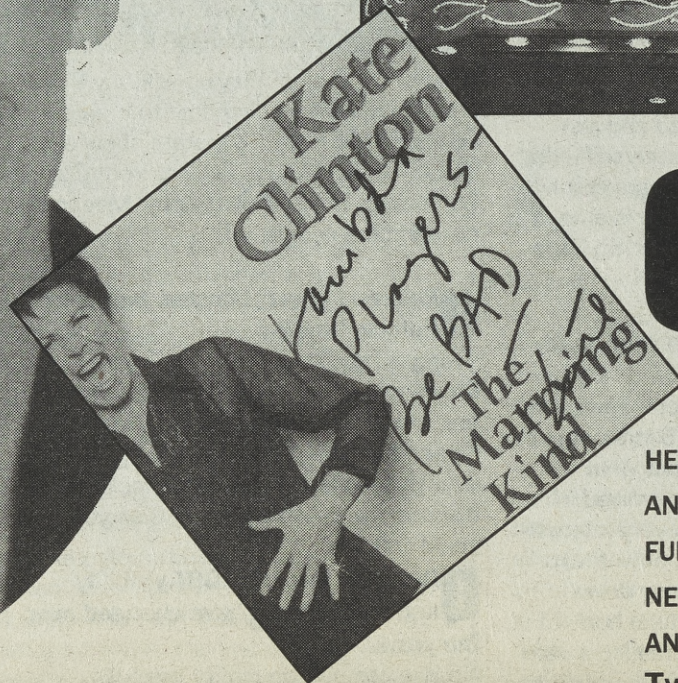 Kate
Clinton
Lambda
Players-
Be BAD
The
Marrying
Kind
Kate
HE
AN
FUI
NE
AN
Tv